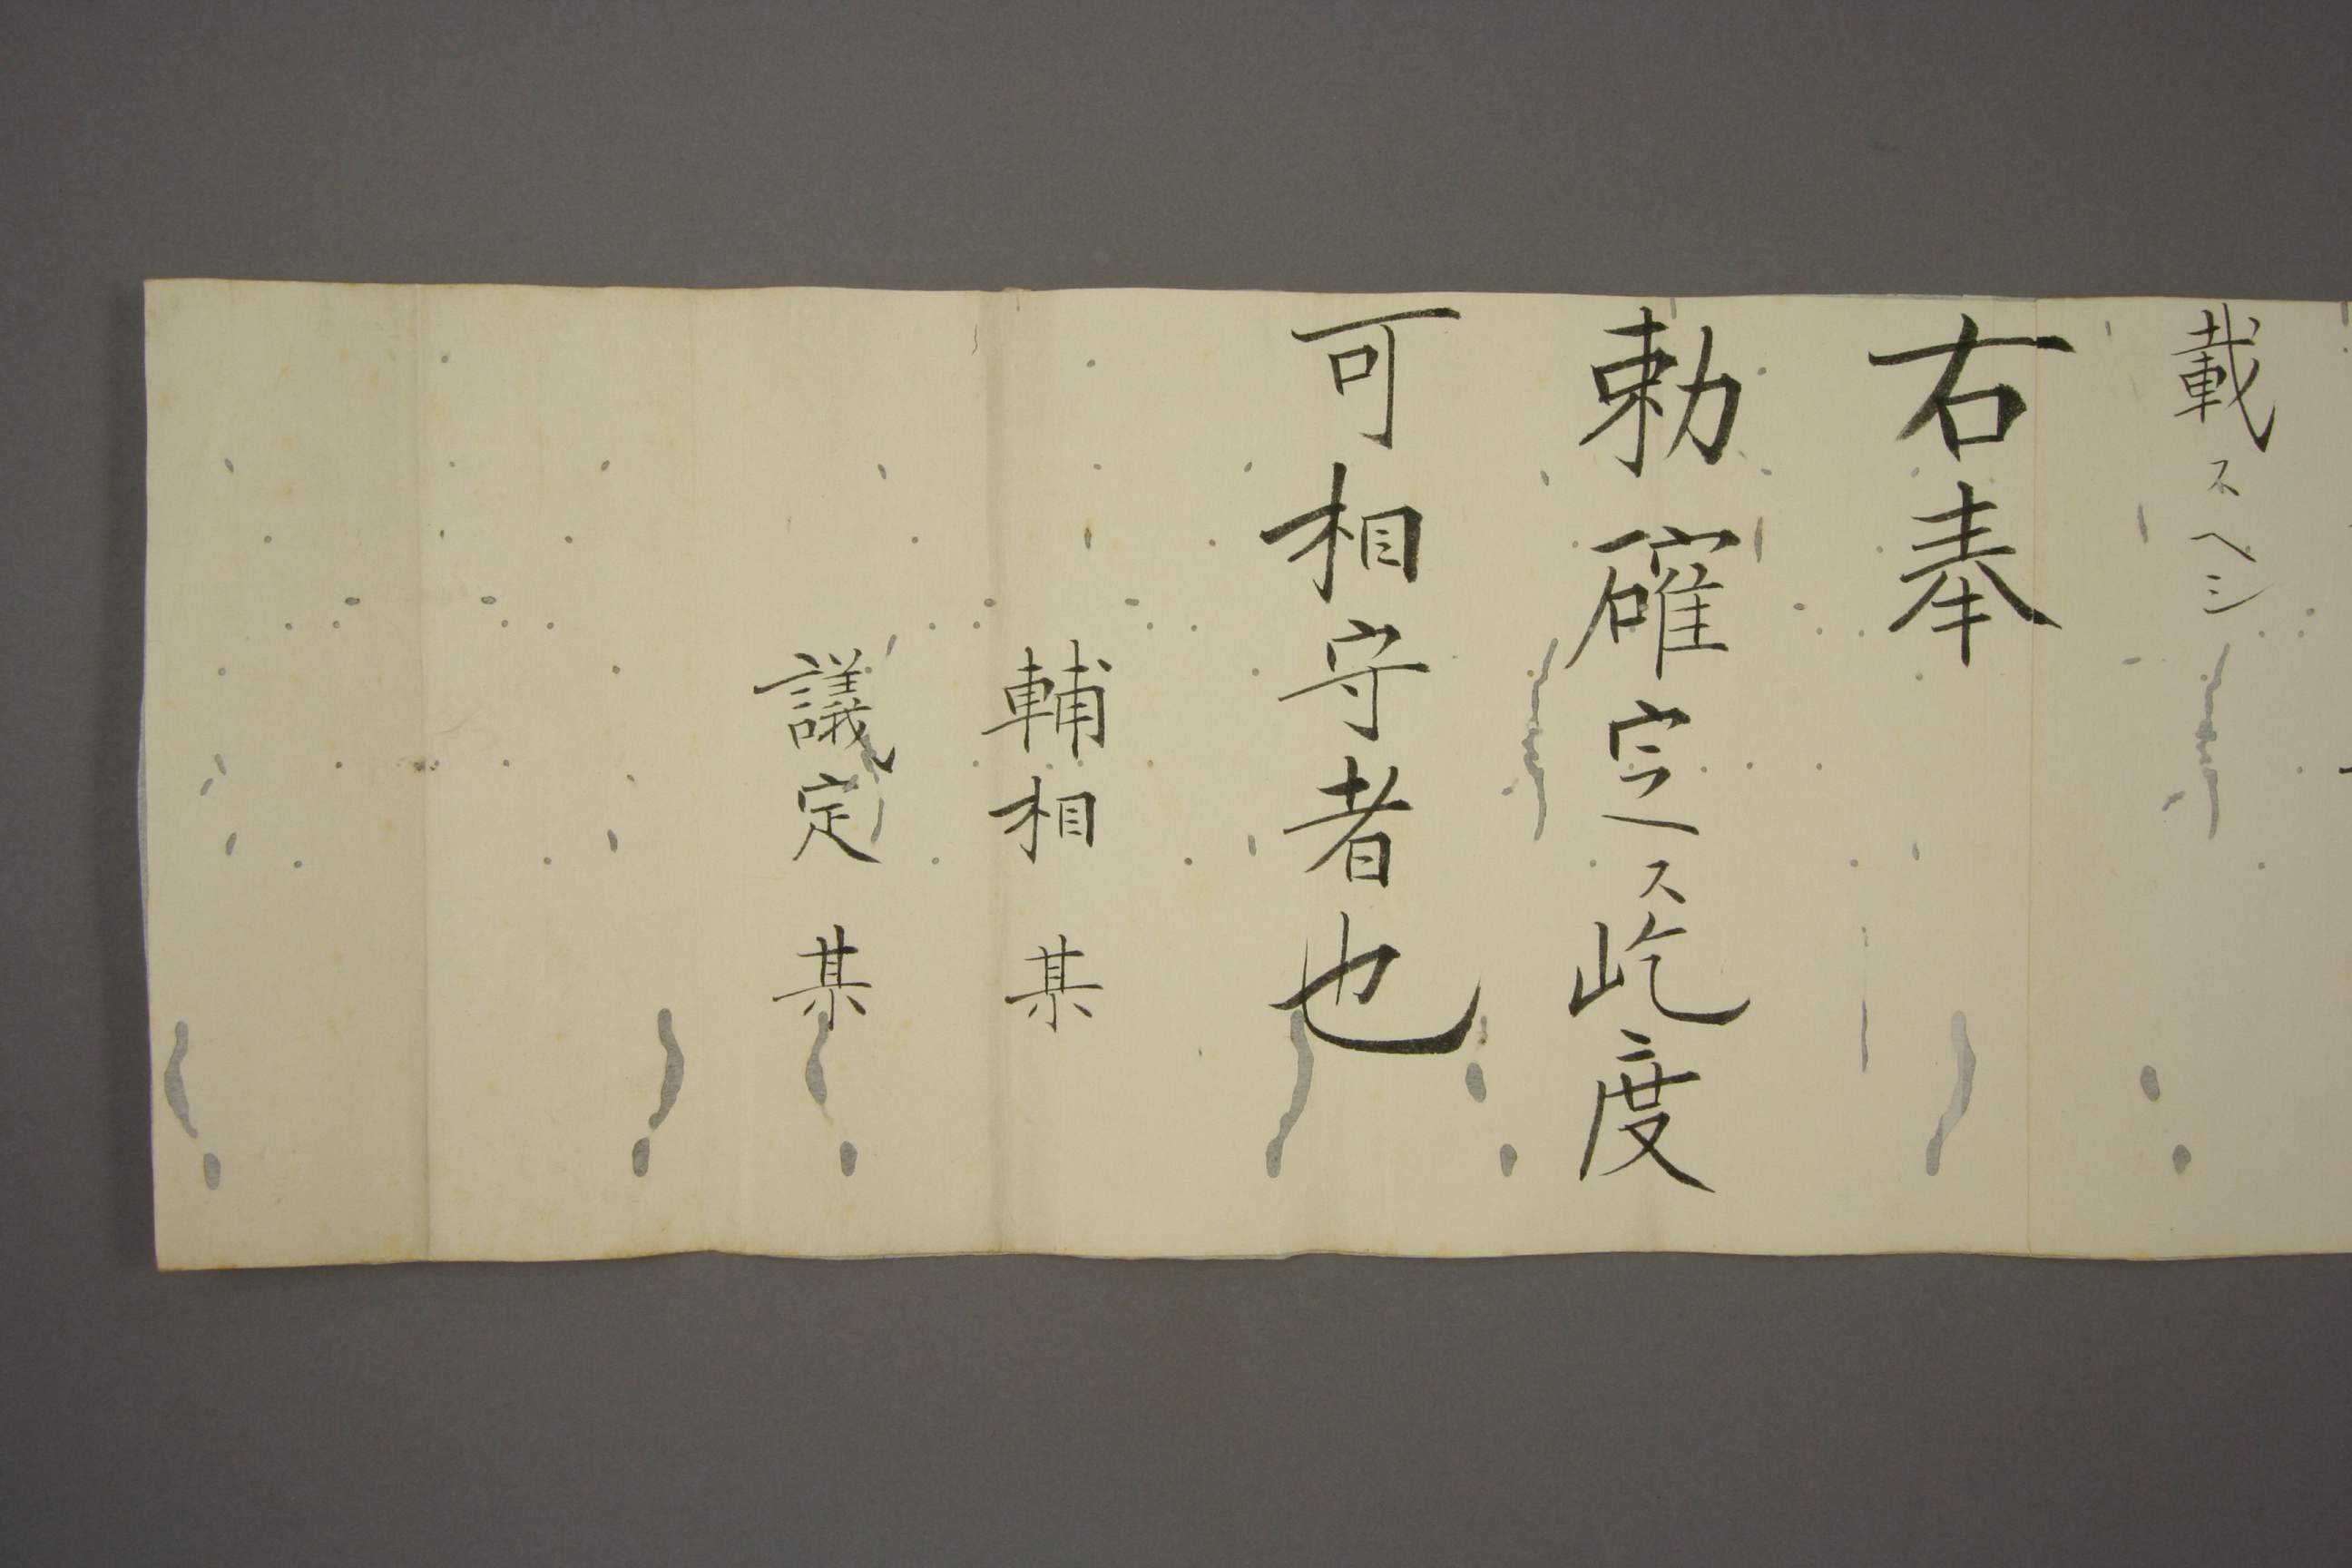 載スヘシ
右奉
勅確定ス屹度
可相守者也
輔相 某
議定 某